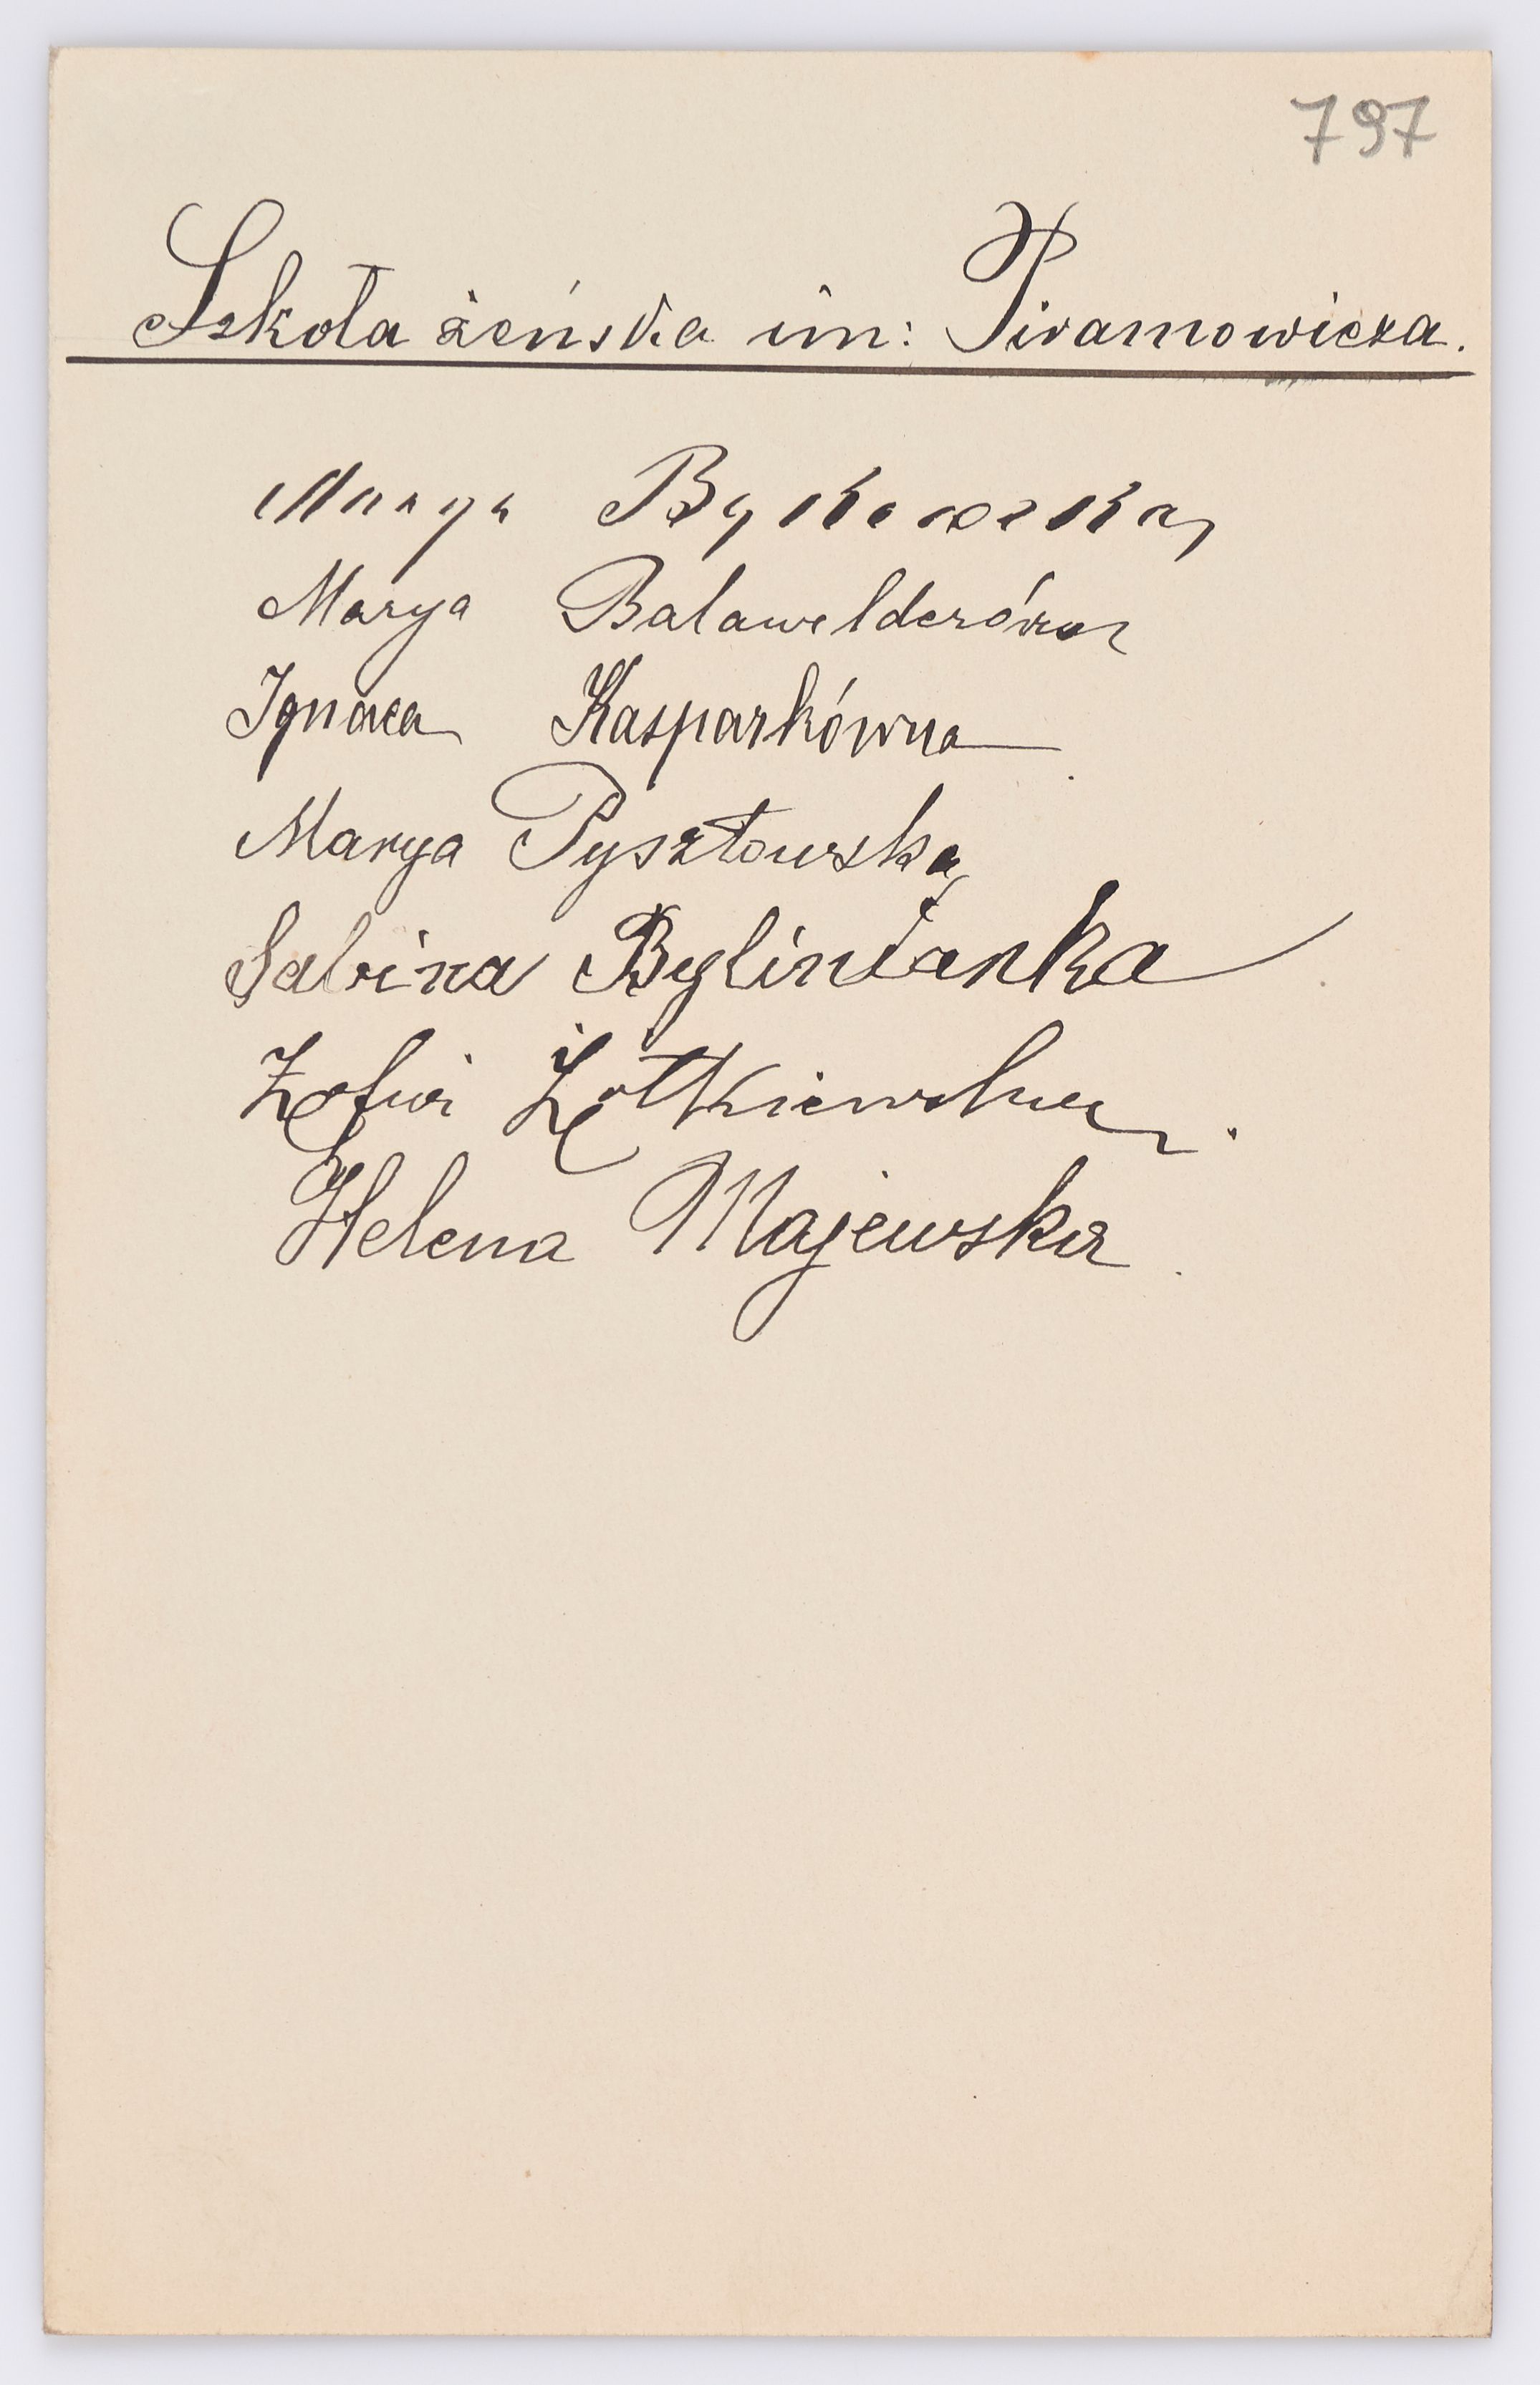 797
Szkoła żeńska im: Piramowicza.
Marya Bykowska
Marya Balawelderówna
Ignaca Kasparkówna
Marya Pysztowska
Sabina Bylinianka
Zofia Żółkiewska
Helena Majewska